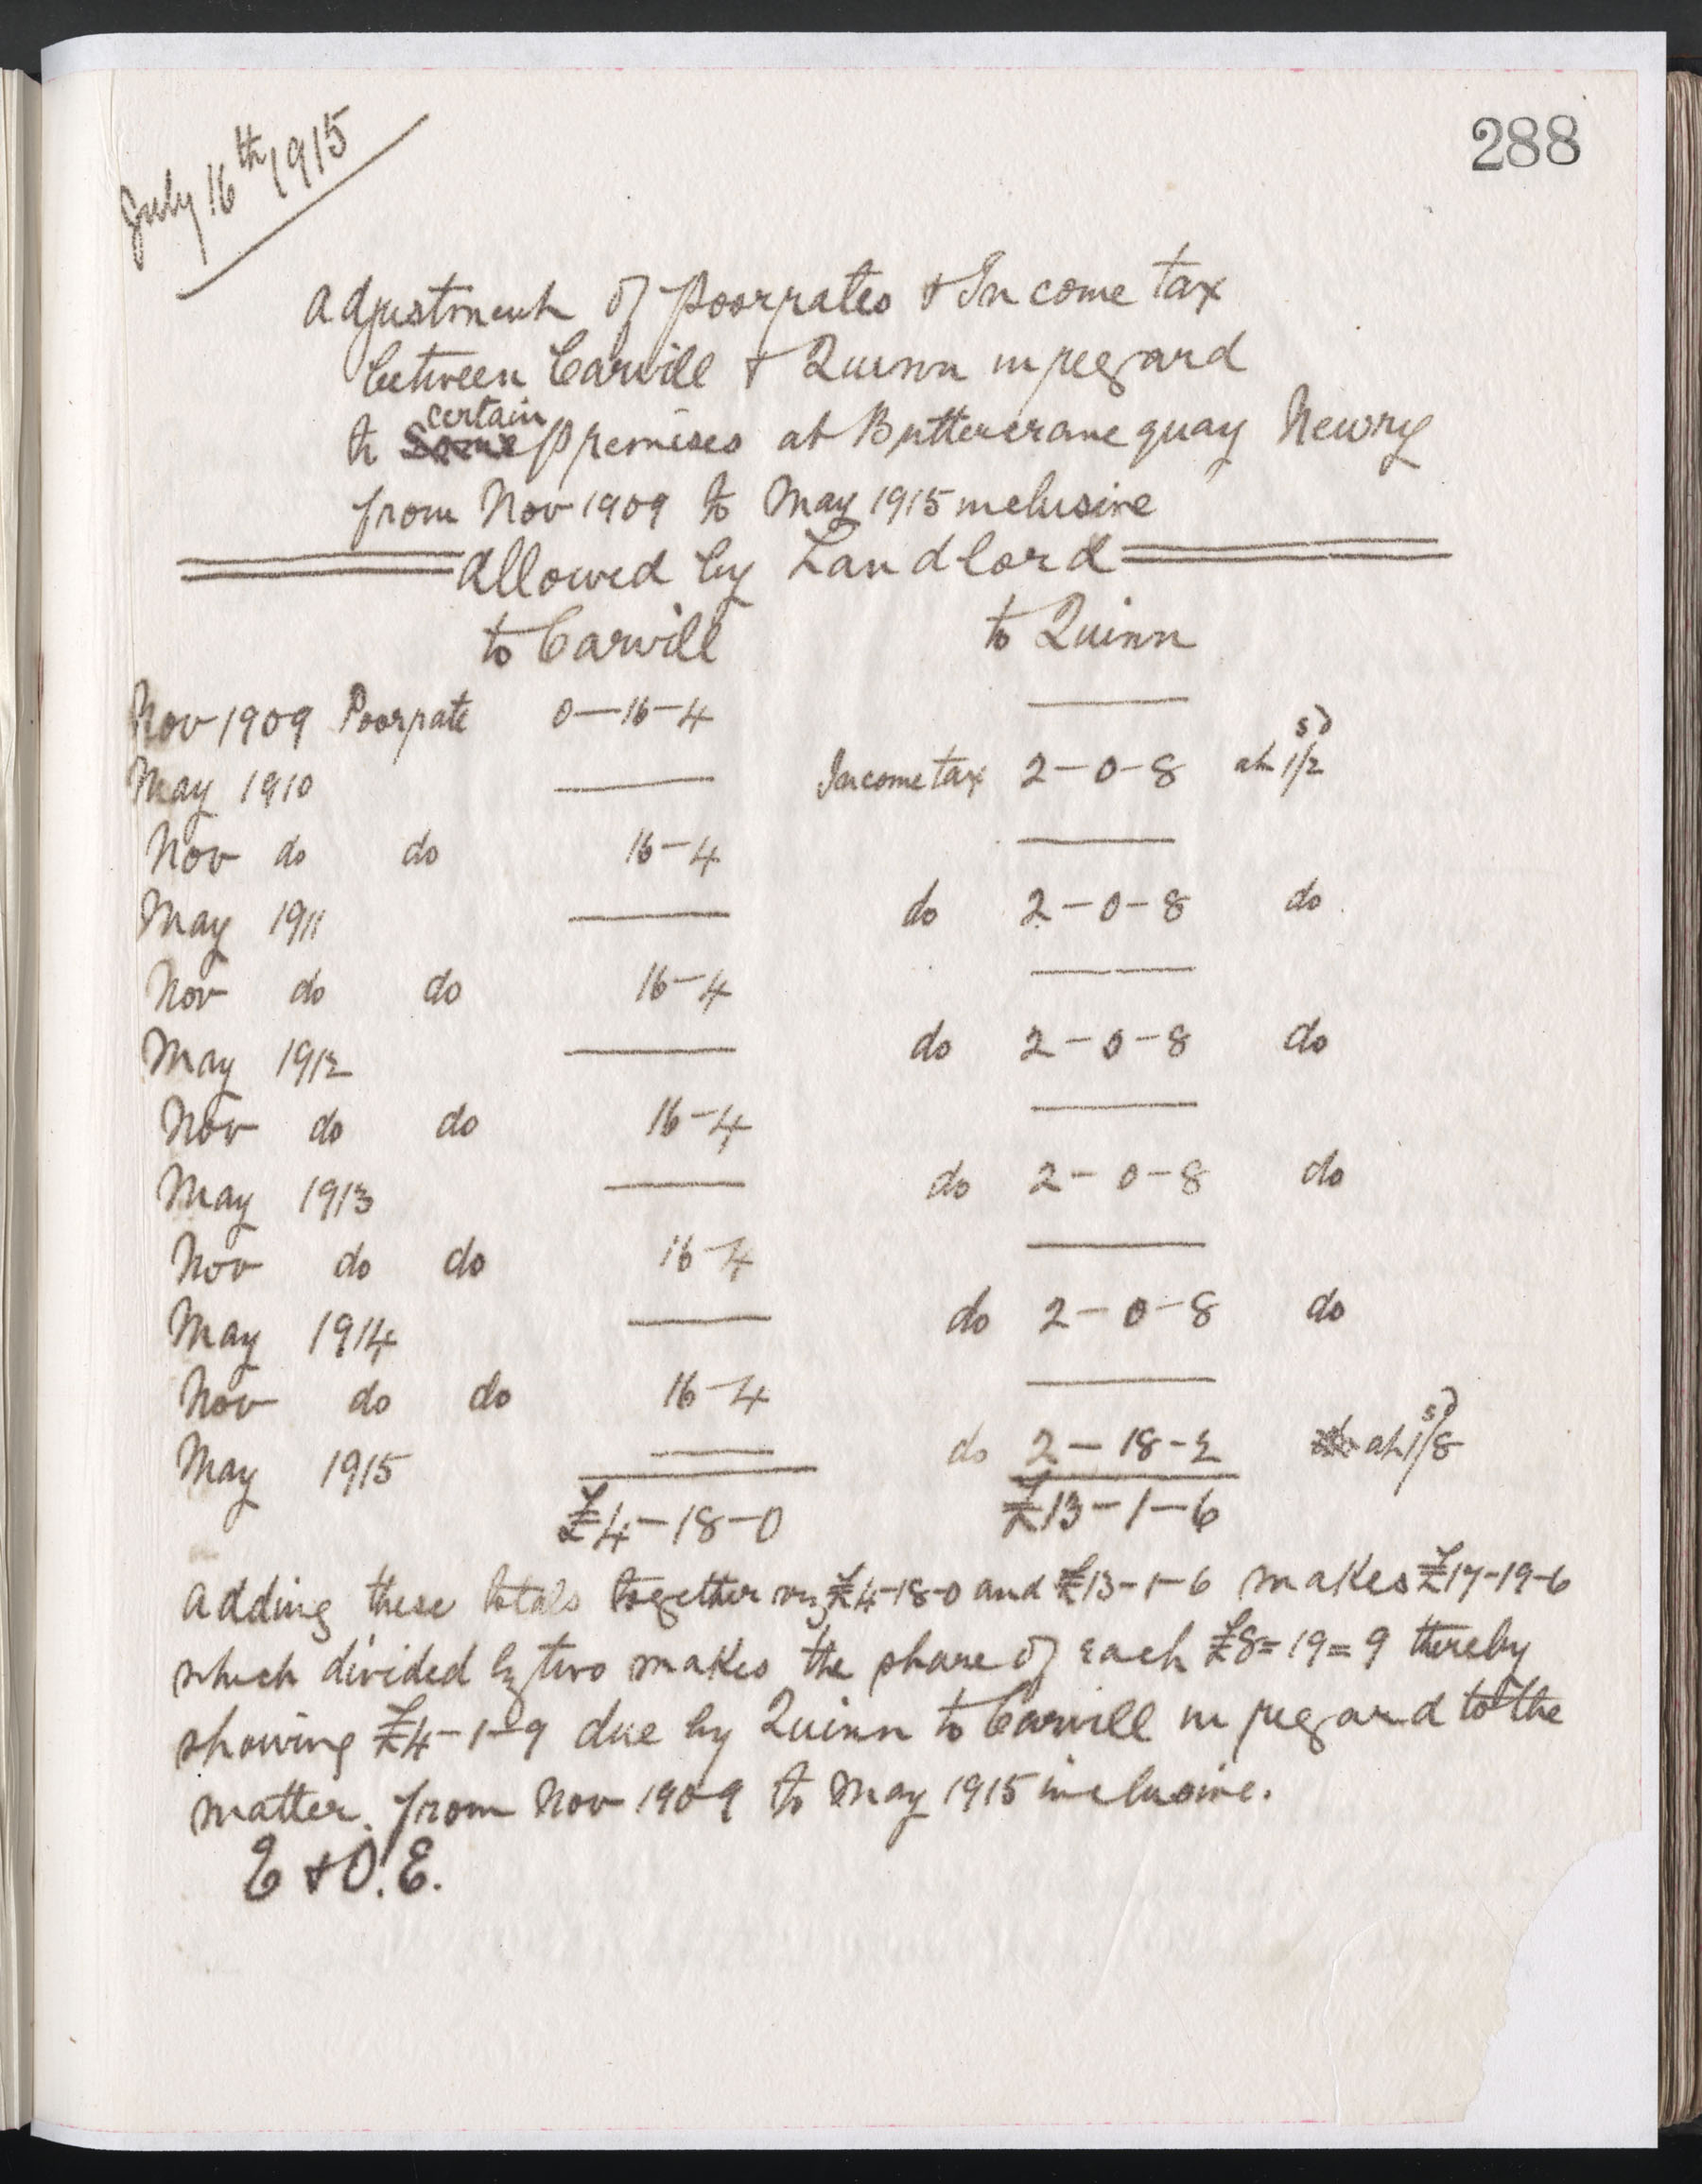 288
July 16th 1915
Adjustment of Poorrates & Income tax
between Carvill & Quinn in regard
to certain premises at Buttercrane quay Newry
from Nov 1909 to May 1915 inclusive
Allowed by Landlord
to Carvill to Quinn
Nov 1909 Poorrate 0-16-4 ———
May 1910 ——— Income tax 2-0-8 at 1/2 s d
Nov do do 16-4 ———
May 1911 ——— do 2-0-8 do
Nov do do 16-4 ———
May 1912 ——— do 2-0-8 do
Nov do do 16-4 ———
May 1913 ——— do 2-0-8 do
Nov do do 16-4 ———
May 1914 ——— do 2-0-8 do
Nov do do 16-4 ———
May 1915 ——— do 2-18-2 at 1/8 s d
£4-18-0 £13-1-6
Adding these totals together viz £4-18-0 and £13-1-6 makes £17-19-6
which divided by two makes the share of each £8=19=9 thereby
showing £4-1-9 due by Quinn to Carvill in regard to the
matter. from Nov 1909 to May 1915 inclusive.
E & O.E.